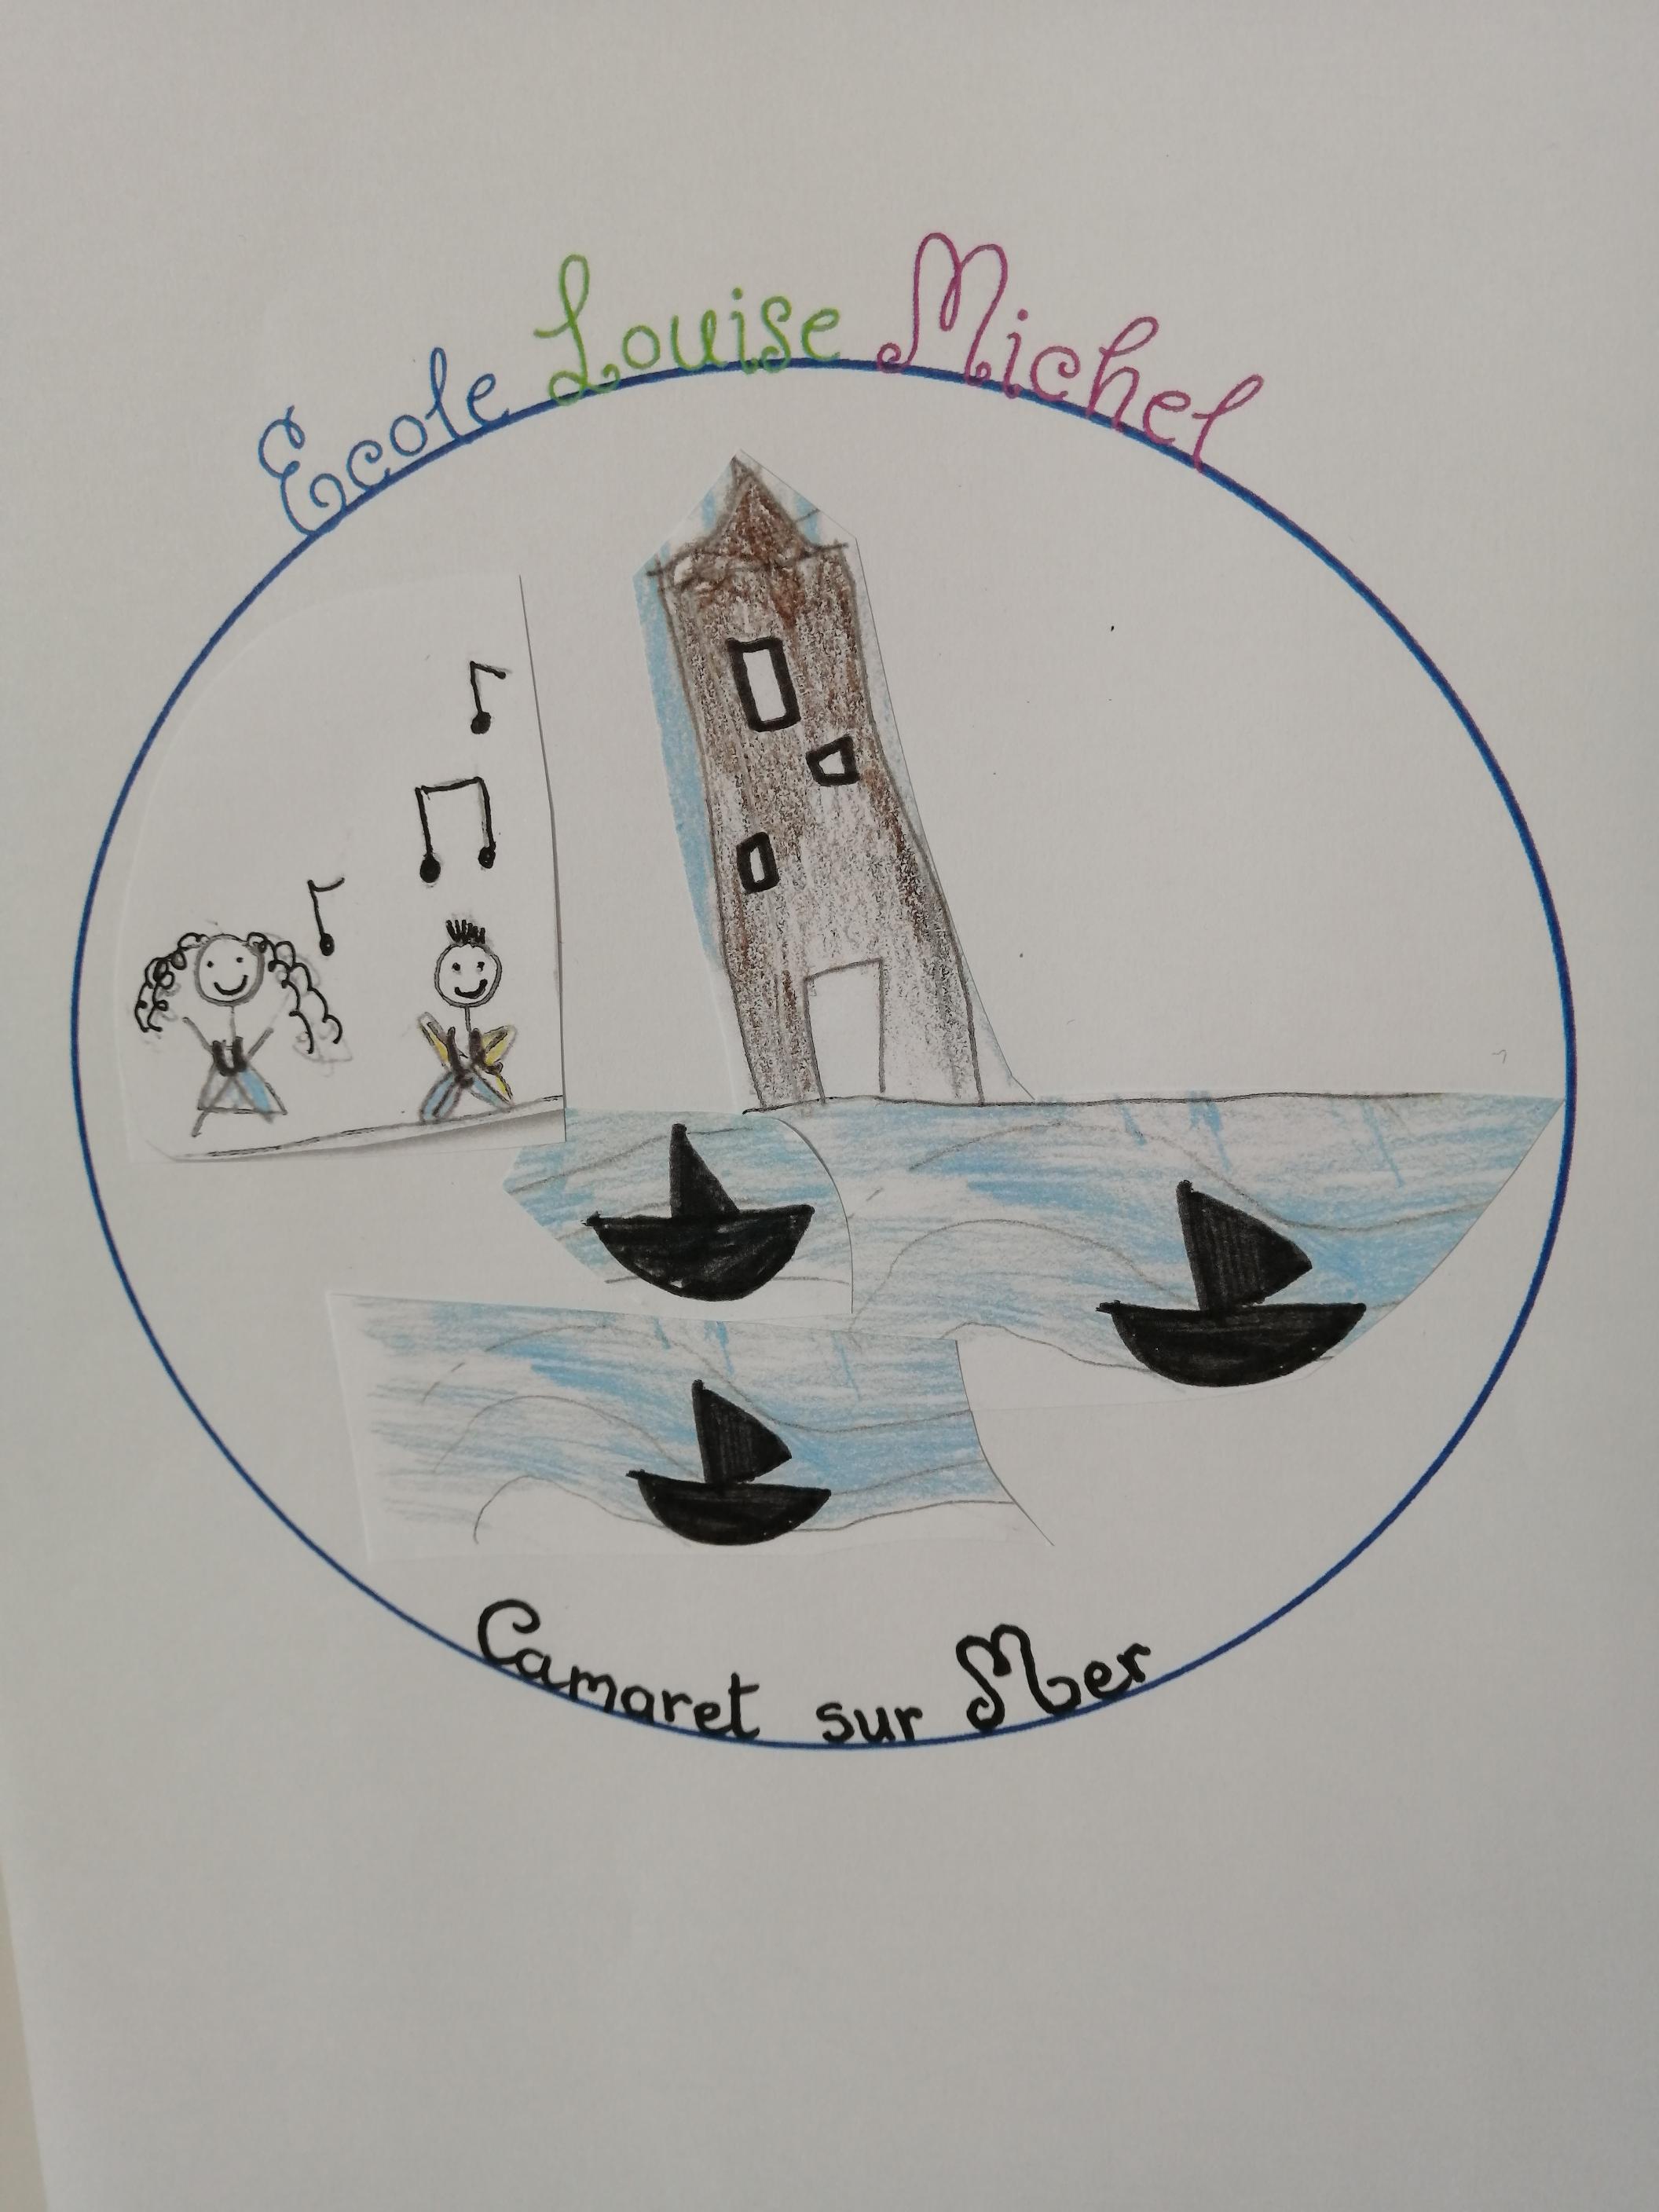 Ecole Louise Michel
Camaret sur Mer